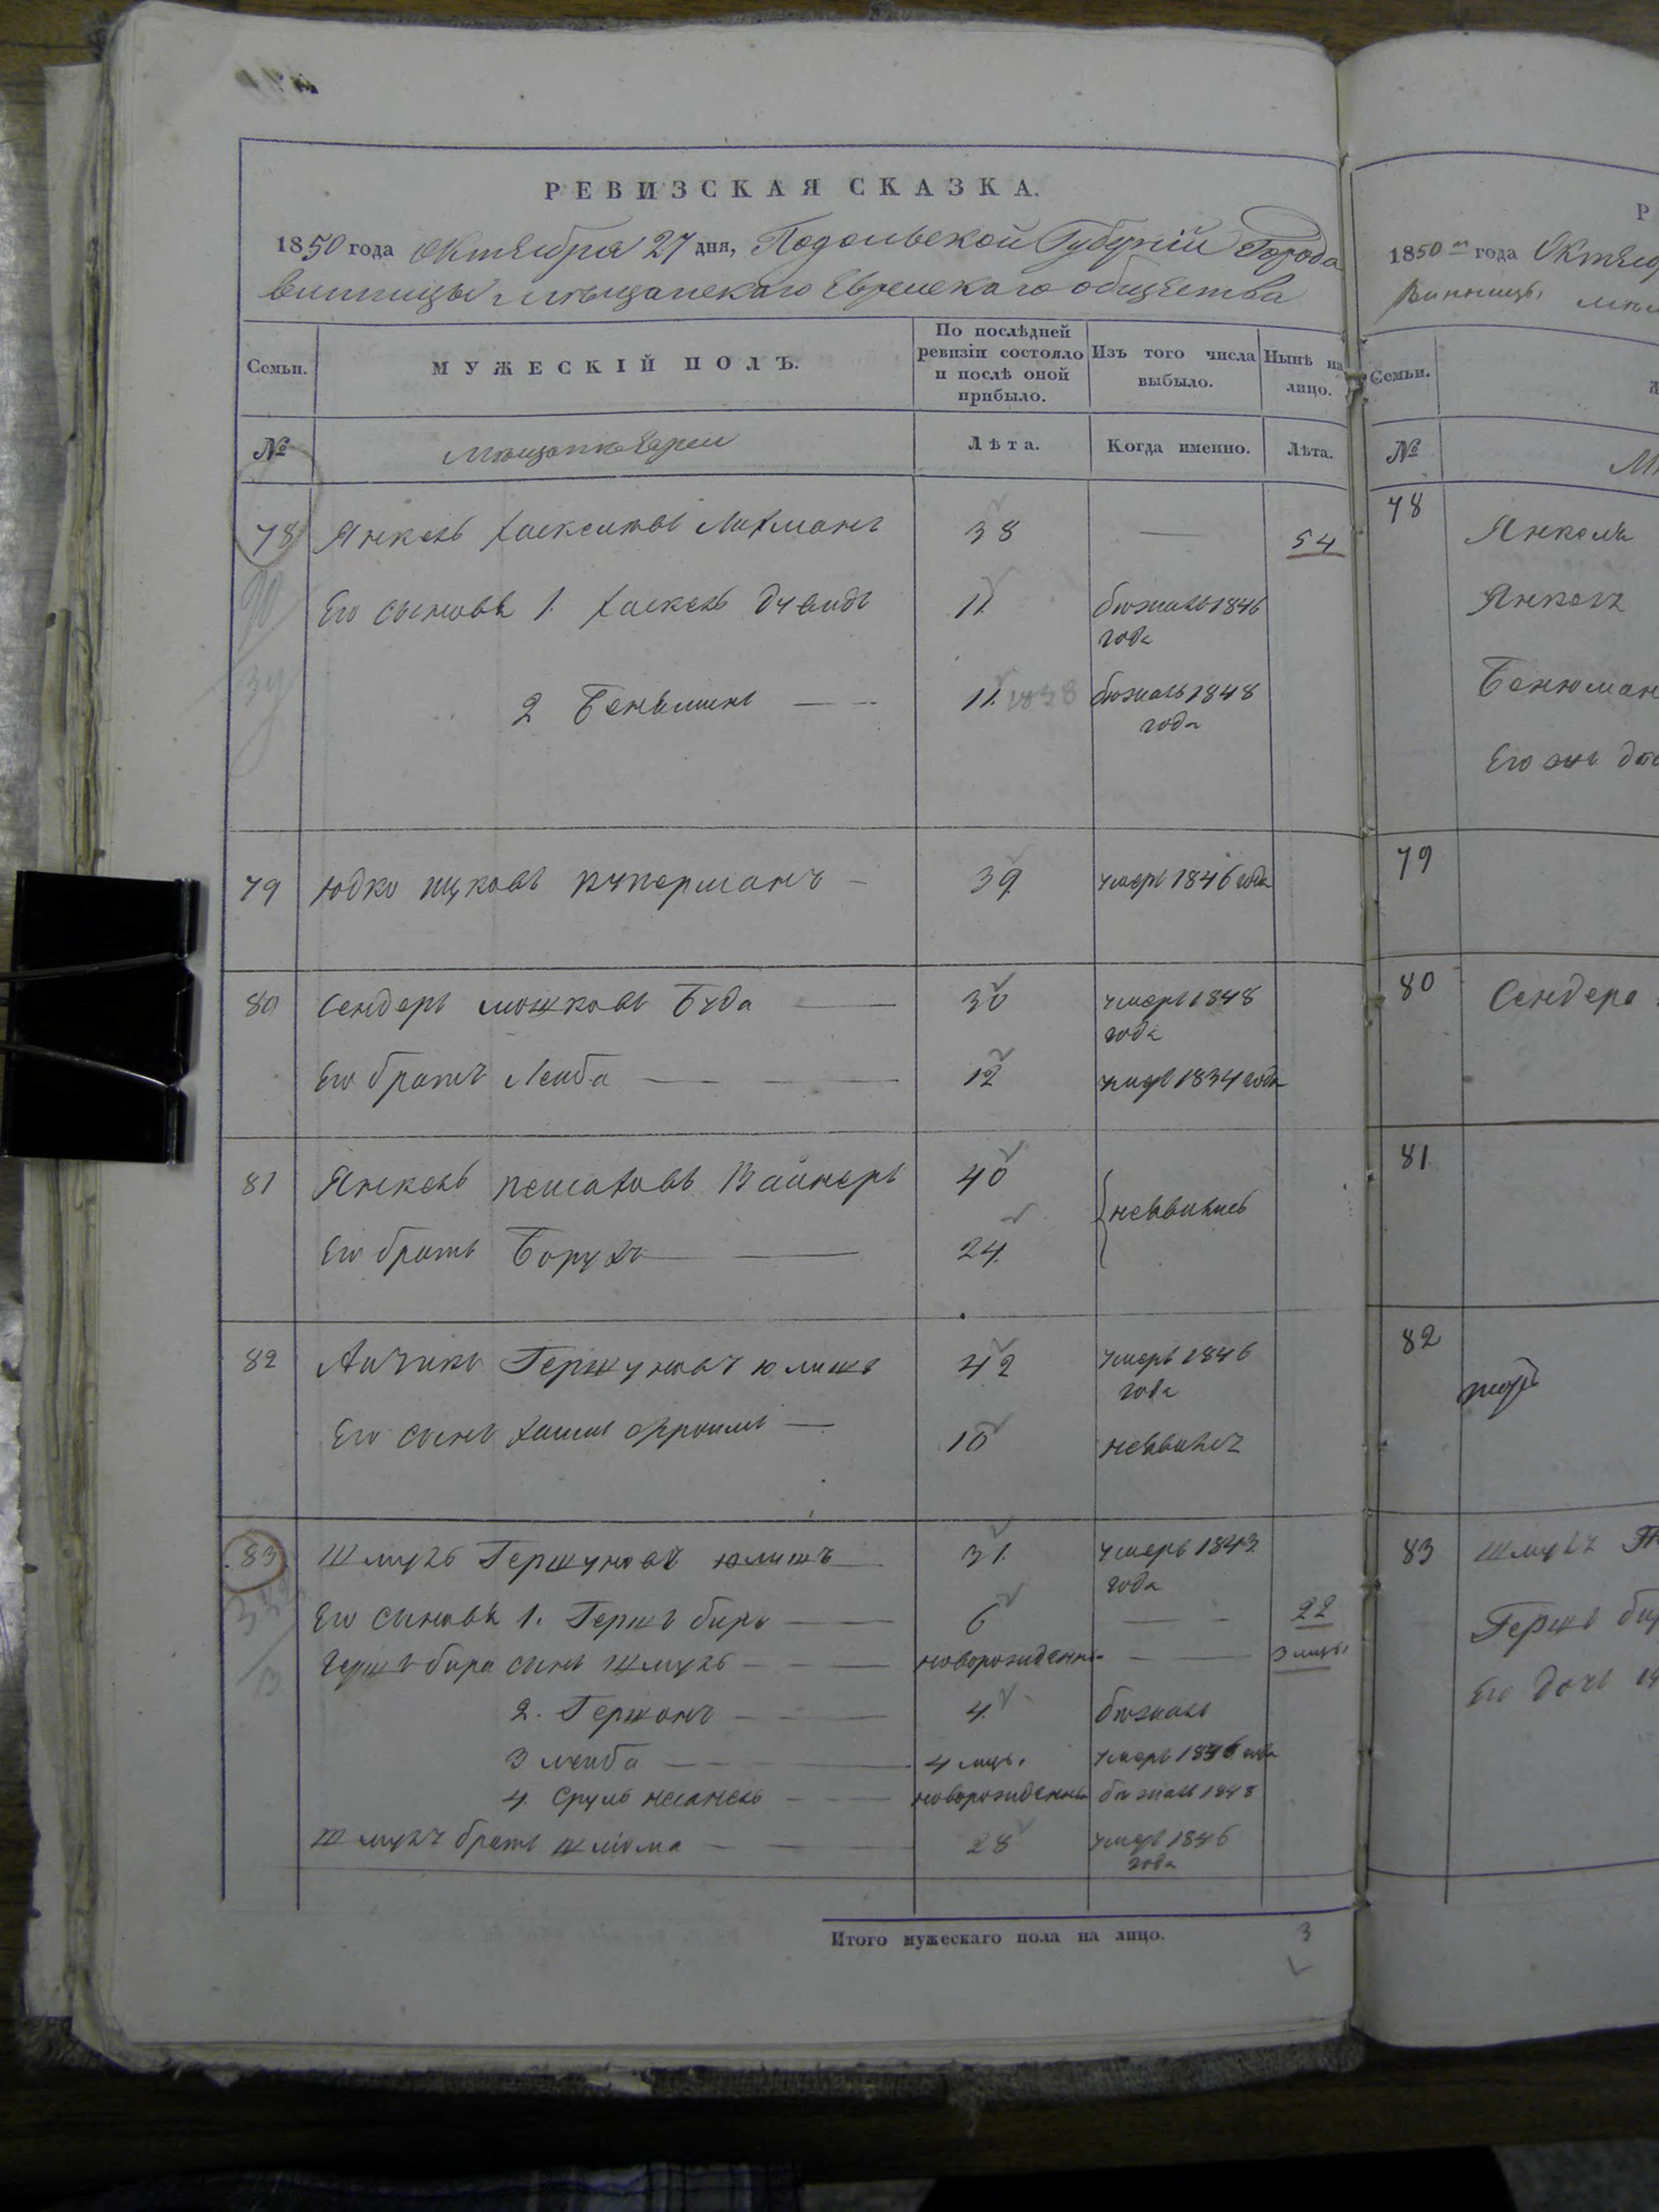 РЕВИЗСКАЯ СКАЗКА.
1850 года Октября 27 дня, Подольской Губернии Города
Винницы мещанскаго Еврейскаго общества
Семьи.
МУЖЕСКІЙ ПОЛЪ.
По послѣдней ревизіи состояло и послѣ оной прибыло.
Изъ того числа выбыло.
Нынѣ на лицо.
№
Мещане Евреи
Лѣта.
Когда именно.
Лѣта.
78 Янкель Хаскелевъ Лахманъ 38 — 54
Его сыновья 1. Хаскель Дувидъ 11 бежалъ 1846 года
2 Беньминъ 11. бежалъ 1848 года
79 Юдко Ицковъ Куперманъ 39 умеръ 1846 года
80 Сендеръ Мошковъ Буда 30 умеръ 1848 года
Его братъ Лейба 12 умеръ 1834 года
81 Янкель Пейсаховъ Вайнеръ 40 неявились
Его братъ Борухъ 24
82 Айзикъ Гершуновъ Юлишъ 42 умеръ 1846 года
Его сынъ Хаимъ Эфроимъ 10 неявился
83 Шмуль Гершуновъ Юлишъ 31 умеръ 1843 года
Его сыновья 1. Гершъ Беръ 6 — 22
Гершъ Бера сынъ Шмуль новорожденны — 3 мцы
2. Гершонъ 4 бежалъ
3 Лейба 4 мцы. умеръ 1836 года
4. Сруль новорожденны бежалъ 1848
Шмуля братъ Шлома 28 умеръ 1846 года
Итого мужескаго пола на лицо. 3
1850 года Октяб
Винницы
Семьи.
№
78 Янкеля
Янкель
Бенюман
Его же
79
80 Сендера
81
82
83 Шмуля
Гершъ Бер
Его дочь